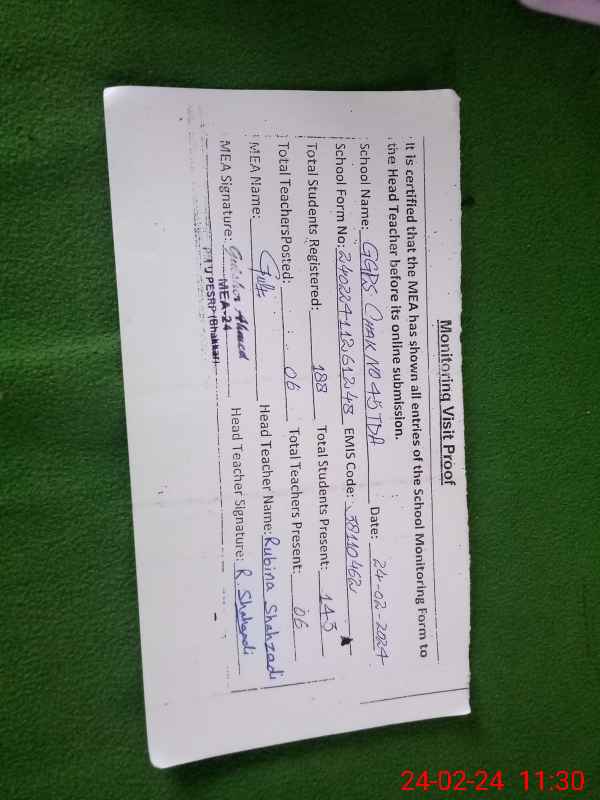 Monitoring Visit Proof
It is certified that the MEA has shown all entries of the School Monitoring Form to
the Head Teacher before its online submission.
School Name: GGPS CHAK NO 45 TDA Date: 24-02-2024
School Form No: 240224-112,61248 EMIS Code: 38110462
Total Students Registered: 188 Total Students Present: 145
Total TeachersPosted: 06 Total Teachers Present: 06
MEA Name: Head Teacher Name: Rubina Shahzadi
MEA Signature: Ahmed Head Teacher Signature: R. Shahzadi
MEA-24
PESRP (Bhakkar)
24-02-24 11:30